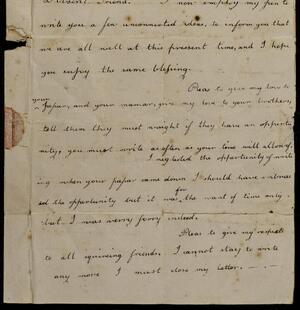 Absent Friend. I now employ my pen to
write you a few unconnected ideas, to inform you that
we are all well at this present time, and I hope
you enjoy the same blessing.
Pleas to give my love to
your
papar, and your mamar, give my love to your brothers,
tell them they must wright if they have an opportu
nity, you must write as often as your love will allow,
I neglected the opportunity of writ
ing when your papar came down I should have embrac
ed the opportunity but it was for the want of time only.
but I was verry sorry indeed.
Pleas to give my respects
to all enquiering friends. I cannot stay to write
any more I must close my letter.